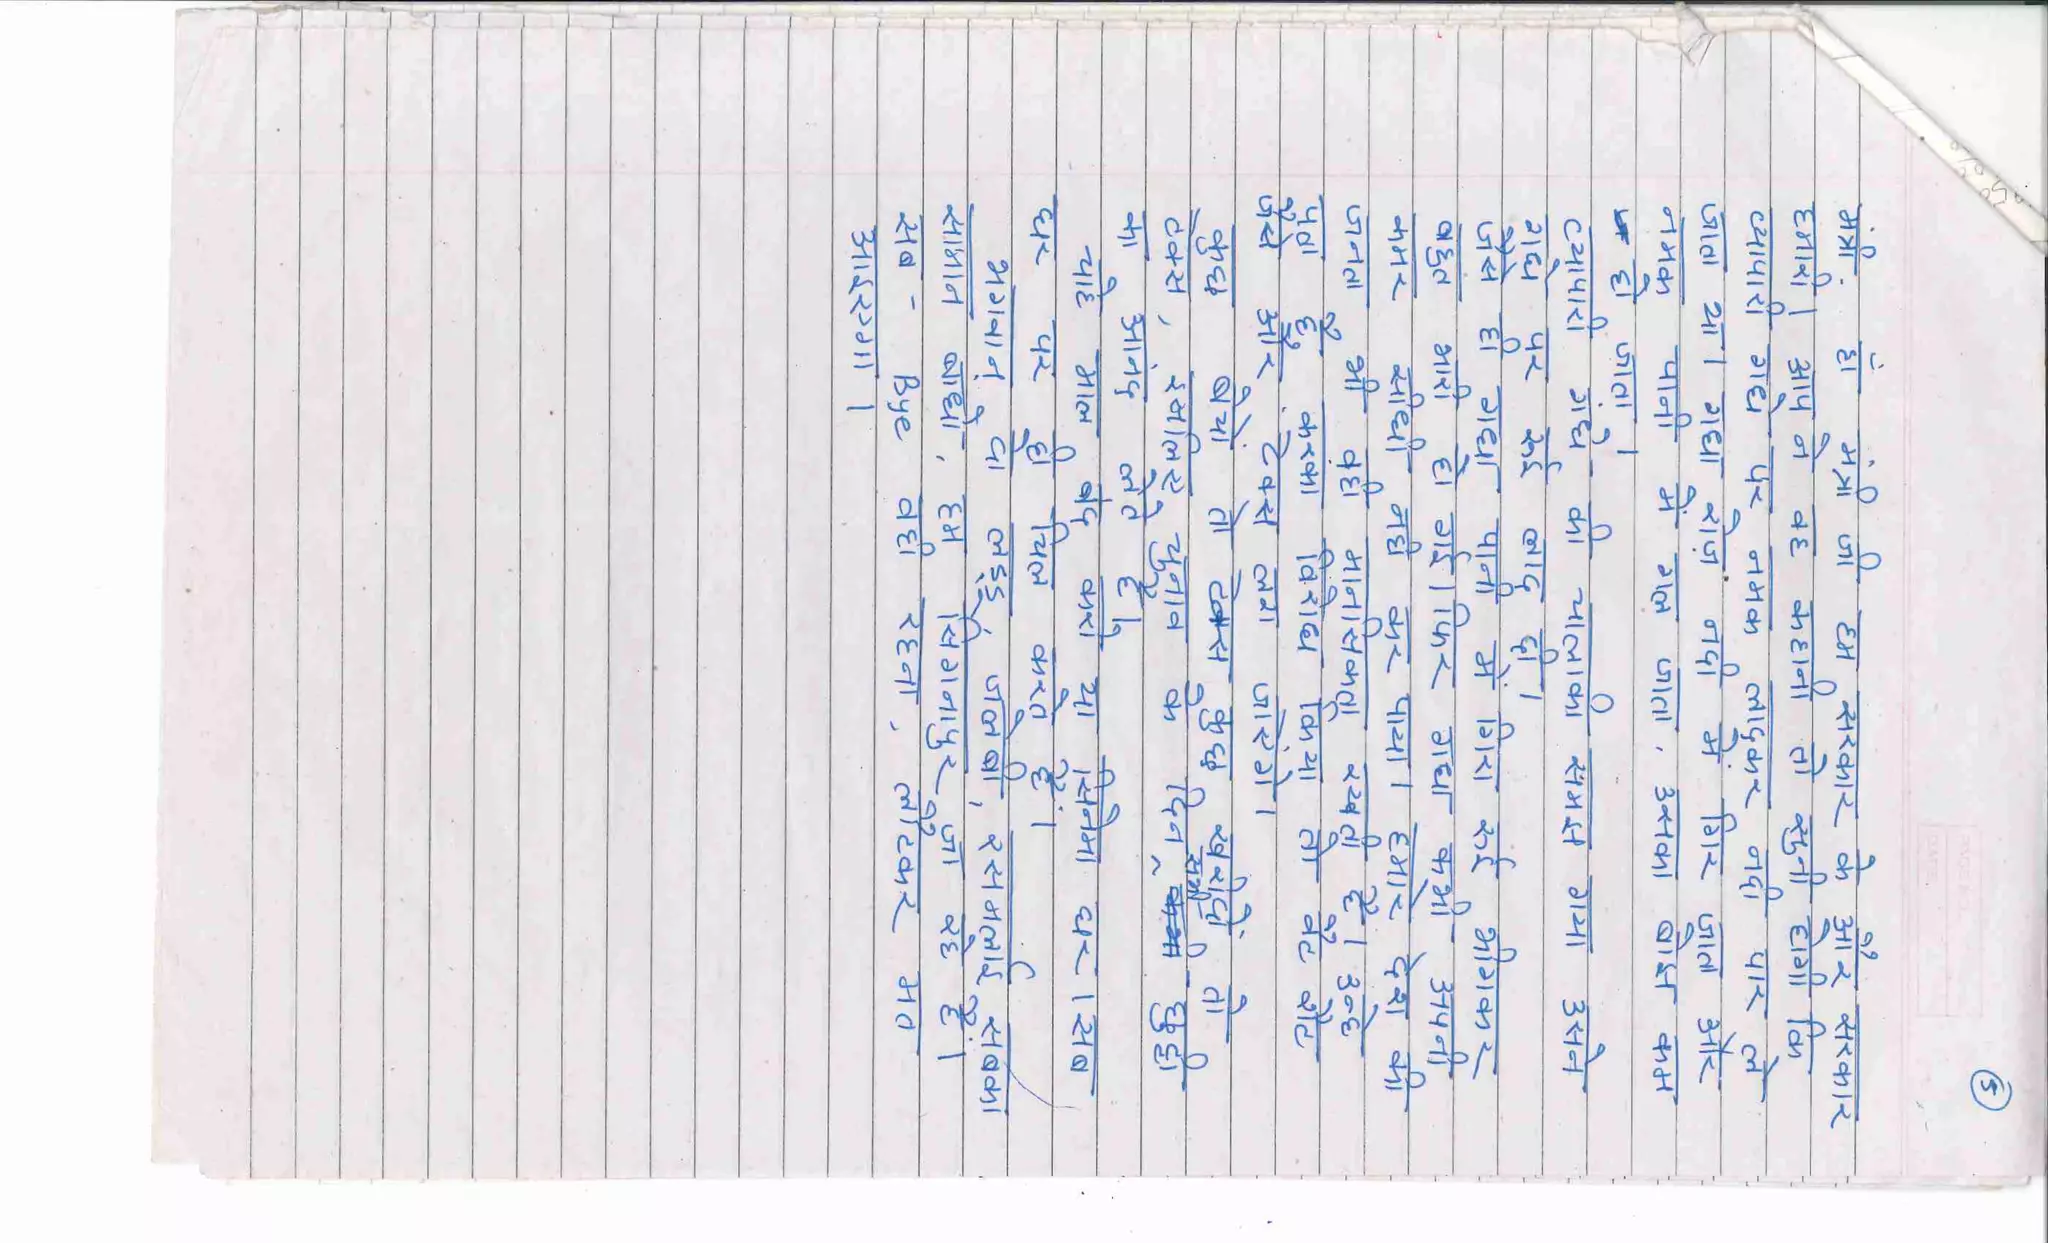 5
मंत्री. हां मंत्री जी हम सरकार के और सरकार
हमारी। आप ने वह कहानी तो सुनी होगी कि
व्यापारी गधे पर नमक लादकर नदी पार ले
जाता था। गधा रोज नदी में गिर जाता और
नमक पानी में गल जाता, उसका बोझ कम
हो जाता।
व्यापारी गधे की चालाकी समझ गया उसने
गधे पर रूई लाद दी।
जैसे ही गधा पानी में गिरा रूई भीगकर
बहुत भारी हो गई। फिर गधा कभी अपनी
कमर सीधी नहीं कर पाया। हमारे देश की
जनता भी वही मानसिकता रखती है। उन्हें
पता है करका विरोध किया तो बैठे बैठे
जैसे और टैक्स लग जाएंगे।
कुछ बेचो तो टैक्स कुछ खरीदो तो
टैक्स, इसीलिए चुनाव के दिन, सभी छुट्टी
का आनंद लेते हैं।
चाहे माल बंद करो या सिनेमा घर। सब
घर पर ही चिल करते हैं।
भगवान दो लड्डू, जलेबी, रसमलाई सबका
सामान बांधो, हम सिंगापुर जा रहे हैं।
सब - Bye वही रहना, लौटकर मत
आइएगा।